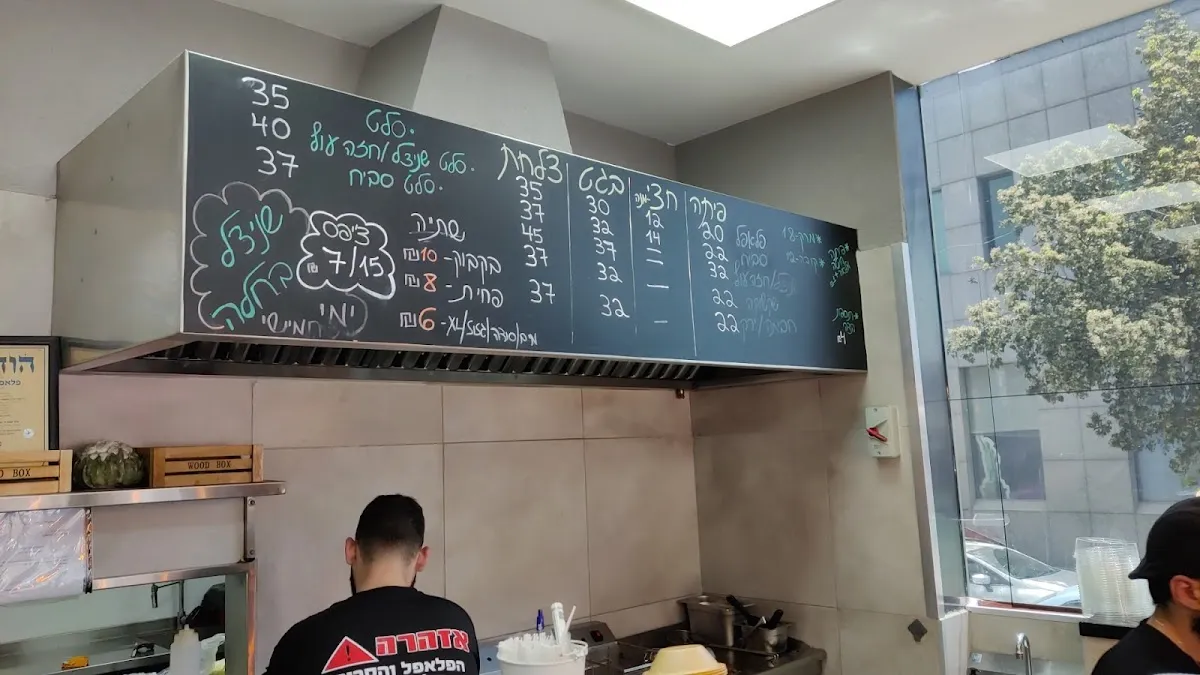 פיתה חצי-מנה בגט צלחת
פלאפל 20 12 30 35
סביח 22 14 32 37
שניצל/חזה עוף 32 — 37 45
שקשוקה 22 — 32 37
חביתה/ירק 22 — 32 37
*מרק-18
*קובה-12
*תוספת
₪4
סלט. 35
סלט שניצל/חזה עוף. 40
סלט סביח. 37
שתיה
בקבוק- 10₪
פחית- 8₪
מים/סודה/גזוז/XL- 6₪
צ'יפס
7/15 ₪
שניצל
בחלה
ימי
חמישי
הוד
פלאפל
WOOD BOX
BOX
אזהרה
הפלאפל